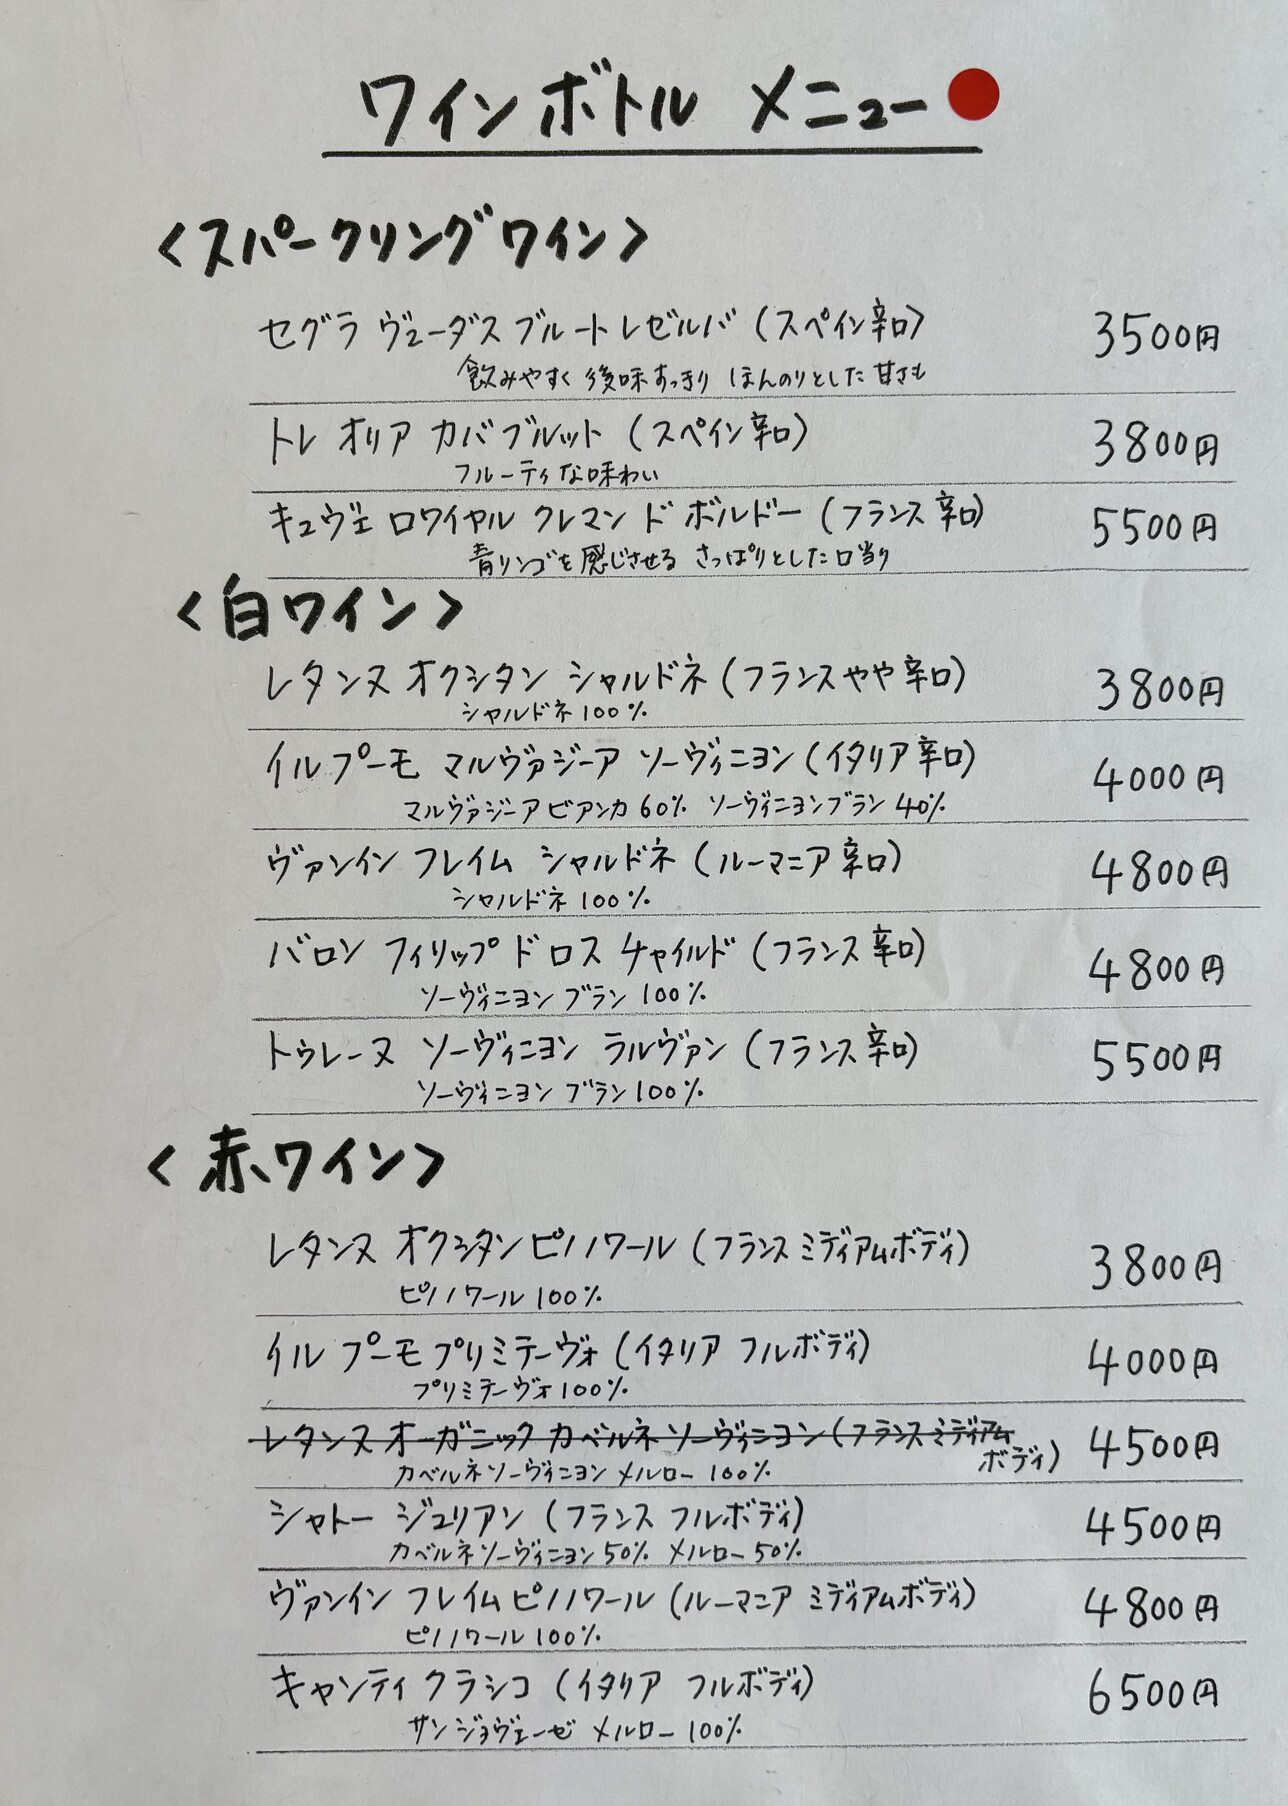 ワインボトル メニュー
<スパークリングワイン>
セグラ ヴューダス ブルート レゼルバ (スペイン辛口) 3500円
飲みやすく 後味すっきり ほんのりとした甘さも
トレ オリア カバ ブルット (スペイン辛口) 3800円
フルーティな味わい
キュヴェ ロワイヤル クレマン ド ボルドー (フランス 辛口) 5500円
青リンゴを感じさせる さっぱりとした口当り
<白ワイン>
レタンヌ オクシタン シャルドネ (フランスやや辛口) 3800円
シャルドネ100%
イル プーモ マルヴァジーア ソーヴィニヨン (イタリア辛口) 4000円
マルヴァジーア ビアンカ 60% ソーヴィニヨンブラン 40%
ヴァンイン フレイム シャルドネ (ルーマニア 辛口) 4800円
シャルドネ 100%
バロン フィリップ ド ロス チャイルド (フランス 辛口) 4800円
ソーヴィニヨン ブラン 100%
トゥレーヌ ソーヴィニヨン ラルヴァン (フランス 辛口) 5500円
ソーヴィニヨン ブラン 100%
<赤ワイン>
レタンヌ オクシタン ピノノワール (フランス ミディアムボディ) 3800円
ピノノワール 100%
イル プーモ プリミテーヴォ (イタリア フルボディ) 4000円
プリミテーヴォ100%
レタンヌ オーガニック カベルネ ソーヴィニヨン (フランス ミディアム 4500円
ボディ)
カベルネソーヴィニヨン メルロー 100%
シャトー ジュリアン (フランス フルボディ) 4500円
カベルネソーヴィニヨン 50% メルロー 50%
ヴァンイン フレイム ピノノワール (ルーマニア ミディアムボディ) 4800円
ピノノワール 100%
キャンティ クラシコ (イタリア フルボディ) 6500円
サンジョヴェーゼ メルロー 100%